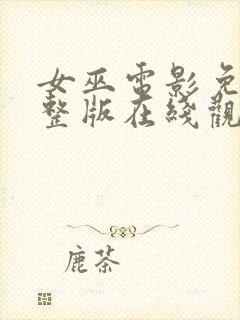 女巫電影免
整版在綫觀
鹿茶